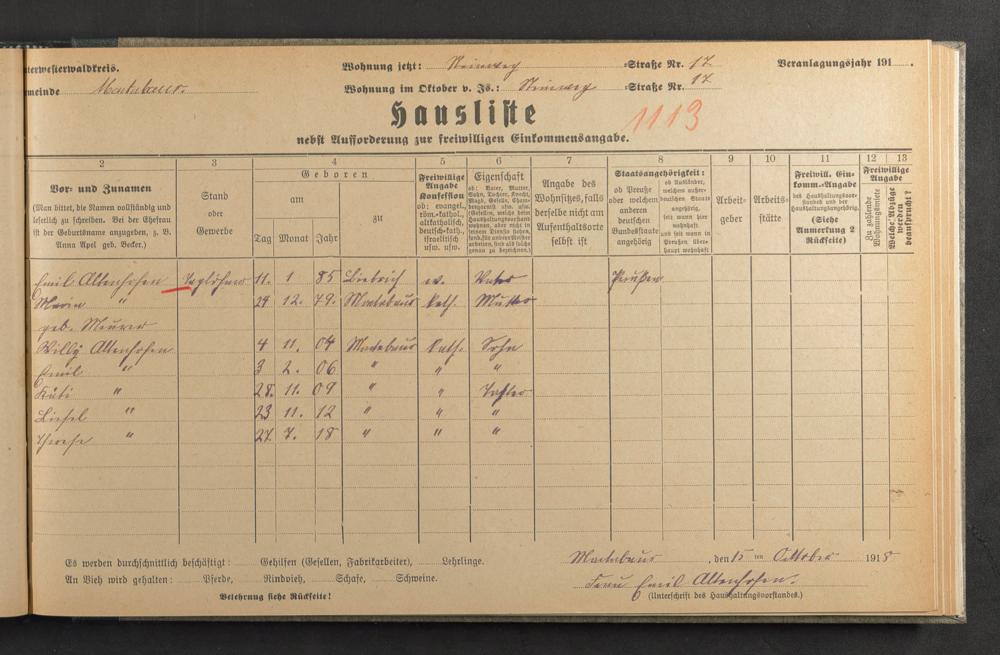 terwesterwaldkreis. Wohnung jetzt: Steinweg Straße Nr. 17 Veranlagungsjahr 191 .
meinde Montabaur. Wohnung im Oktober v. Js.: Steinweg Straße Nr. 17
Hausliste
1113
nebst Aufforderung zur freiwilligen Einkommensangabe.
2 3 4 5 6 7 8 9 10 11 12 13
Vor- und Zunamen
(Man bittet, die Namen vollständig und
leserlich zu schreiben. Bei der Ehefrau
ist der Geburtsname anzugeben, z. B.
Anna Apel geb. Becker.)
Stand
oder
Gewerbe
Geboren
am zu
Tag Monat Jahr
Freiwillige
Angabe
Konfession
ob: evangel.,
röm.-kathol.,
altkatholisch,
deutsch-kath.,
israelitisch
usw. usw.
Eigenschaft
ob: Vater, Mutter,
Sohn, Tochter, Knecht,
Magd, Geselle,
Angabe des
Wohnsitzes, falls
derselbe nicht am
Aufenthaltsorte
selbst ist
Staatsangehörigkeit:
ob Preuße
oder welchem
anderen
deutschen
Bundesstaate
angehörig
ob Ausländer,
welchem außer-
deutschen Staate
angehörig,
seit wann hier
wohnhaft
und seit wann in
Preußen über-
haupt wohnhaft
Arbeit-
geber
Arbeits-
stätte
Freiwill. Ein-
komm.-Angabe
des Haushaltungsvor-
standes und der
Haushaltungsangehörig.
(Siehe
Anmerkung 2
Rückseite)
Freiwillige
Angabe
Zu zahlende
Wohnungsmiete
Welche Abzüge
werden
beansprucht?
Emil Altenhofen Taglöhner 11. 1 85 Biebrich ev. Vater Preußen
Maria " 29 12. 79. Montabaur kath. Mutter
geb. Meurer
Willy Altenhofen 4 11. 04 Montabaur kath. Sohn
Emil " 3 2. 06 " " "
Käti " 28. 11. 09 " Tochter
Liesel " 23 11. 12 " " "
Therese " 27. 7. 18 " " "
Es werden durchschnittlich beschäftigt: Gehilfen (Gesellen, Fabrikarbeiter), Lehrlinge.
An Vieh wird gehalten: Pferde, Rindvieh, Schafe, Schweine.
Belehrung siehe Rückseite!
Montabaur, den 15 ten Oktober 1918
Frau Emil Altenhofen.
(Unterschrift des Haushaltungsvorstandes.)